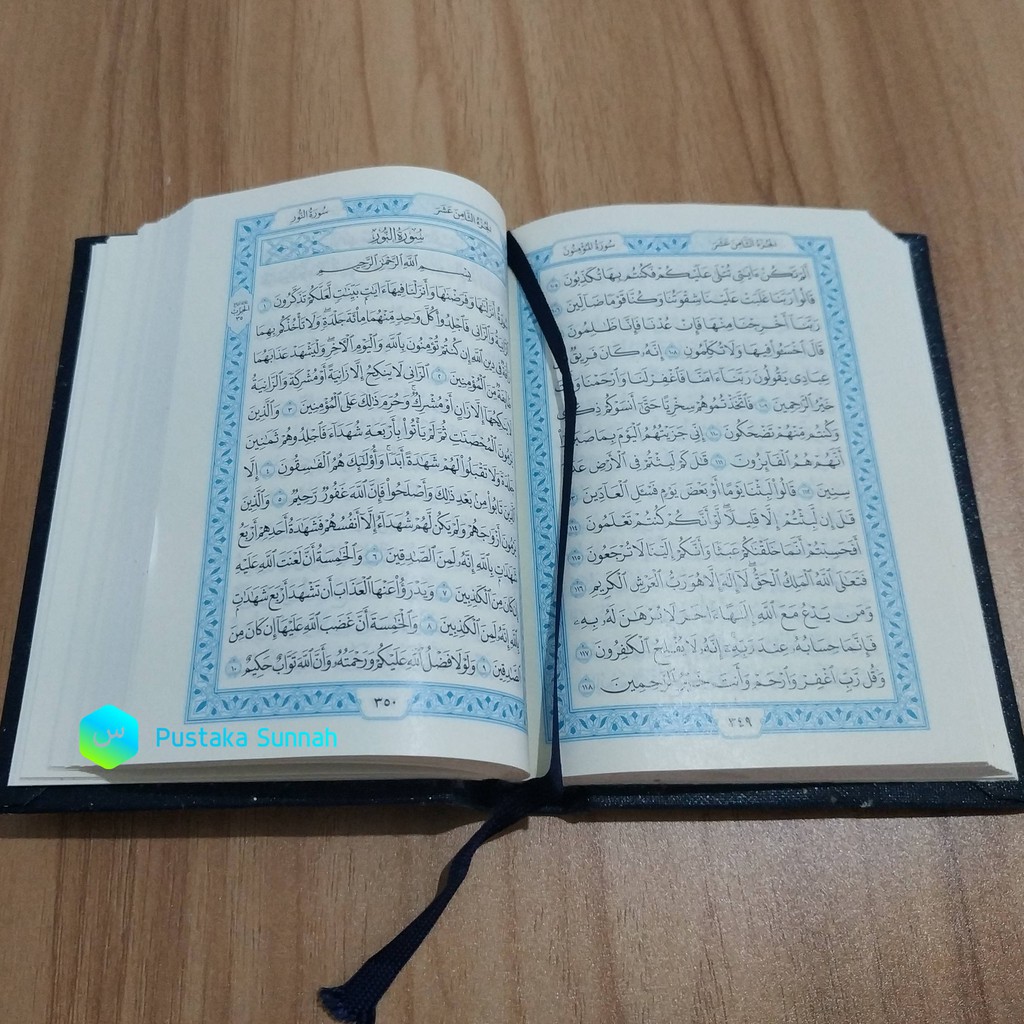 الجزء الثامن عشر
سورة المؤمنون
أَلَمْ تَكُنْ ءَايَٰتِى تُتْلَىٰ عَلَيْكُمْ فَكُنتُم بِهَا تُكَذِّبُونَ
قَالُوا۟ رَبَّنَا غَلَبَتْ عَلَيْنَا شِقْوَتُنَا وَكُنَّا قَوْمًا ضَآلِّينَ
رَبَّنَآ أَخْرِجْنَا مِنْهَا فَإِنْ عُدْنَا فَإِنَّا ظَٰلِمُونَ
قَالَ ٱخْسَـُٔوا۟ فِيهَا وَلَا تُكَلِّمُونِ ١٠٨ إِنَّهُۥ كَانَ فَرِيقٌ
عِبَادِى يَقُولُونَ رَبَّنَآ ءَامَنَّا فَٱغْفِرْ لَنَا وَٱرْحَمْنَا وَأَنتَ
خَيْرُ ٱلرَّٰحِمِينَ ١٠٩ فَٱتَّخَذْتُمُوهُمْ سِخْرِيًّا حَتَّىٰٓ أَنسَوْكُمْ ذِكْرِى
وَكُنتُم مِّنْهُمْ تَضْحَكُونَ ١١٠ إِنِّى جَزَيْتُهُمُ ٱلْيَوْمَ بِمَا صَبَرُوٓا۟
أَنَّهُمْ هُمُ ٱلْفَآئِزُونَ ١١١ قَٰلَ كَمْ لَبِثْتُمْ فِى ٱلْأَرْضِ عَدَدَ
سِنِينَ ١١٢ قَالُوا۟ لَبِثْنَا يَوْمًا أَوْ بَعْضَ يَوْمٍ فَسْـَٔلِ ٱلْعَآدِّينَ
قَٰلَ إِن لَّبِثْتُمْ إِلَّا قَلِيلًا لَّوْ أَنَّكُمْ كُنتُمْ تَعْلَمُونَ ١١٤
أَفَحَسِبْتُمْ أَنَّمَا خَلَقْنَٰكُمْ عَبَثًا وَأَنَّكُمْ إِلَيْنَا لَا تُرْجَعُونَ ١١٥
فَتَعَٰلَى ٱللَّهُ ٱلْمَلِكُ ٱلْحَقُّ لَآ إِلَٰهَ إِلَّا هُوَ رَبُّ ٱلْعَرْشِ ٱلْكَرِيمِ ١١٦
وَمَن يَدْعُ مَعَ ٱللَّهِ إِلَٰهًا ءَاخَرَ لَا بُرْهَٰنَ لَهُۥ بِهِۦ
فَإِنَّمَا حِسَابُهُۥ عِندَ رَبِّهِۦٓ إِنَّهُۥ لَا يُفْلِحُ ٱلْكَٰفِرُونَ ١١٧
وَقُل رَّبِّ ٱغْفِرْ وَٱرْحَمْ وَأَنتَ خَيْرُ ٱلرَّٰحِمِينَ ١١٨
٣٤٩
الجزء الثامن عشر
سورة النور
سُورَةُ النُّورِ
بِسْمِ ٱللَّهِ ٱلرَّحْمَٰنِ ٱلرَّحِيمِ
أَنزَلْنَٰهَا وَفَرَضْنَٰهَا وَأَنزَلْنَا فِيهَآ ءَايَٰتٍۭ بَيِّنَٰتٍ لَّعَلَّكُمْ تَذَكَّرُونَ ١
وَٱلزَّانِى فَٱجْلِدُوا۟ كُلَّ وَٰحِدٍ مِّنْهُمَا مِا۟ئَةَ جَلْدَةٍ وَلَا تَأْخُذْكُم بِهِمَا
فِى دِينِ ٱللَّهِ إِن كُنتُمْ تُؤْمِنُونَ بِٱللَّهِ وَٱلْيَوْمِ ٱلْءَاخِرِ وَلْيَشْهَدْ عَذَابَهُمَا
طَآئِفَةٌ مِّنَ ٱلْمُؤْمِنِينَ ٢ ٱلزَّانِى لَا يَنكِحُ إِلَّا زَانِيَةً أَوْ مُشْرِكَةً وَٱلزَّانِيَةُ
لَا يَنكِحُهَآ إِلَّا زَانٍ أَوْ مُشْرِكٌ وَحُرِّمَ ذَٰلِكَ عَلَى ٱلْمُؤْمِنِينَ ٣ وَٱلَّذِينَ
يَرْمُونَ ٱلْمُحْصَنَٰتِ ثُمَّ لَمْ يَأْتُوا۟ بِأَرْبَعَةِ شُهَدَآءَ فَٱجْلِدُوهُمْ ثَمَٰنِينَ
جَلْدَةً وَلَا تَقْبَلُوا۟ لَهُمْ شَهَٰدَةً أَبَدًا وَأُو۟لَٰٓئِكَ هُمُ ٱلْفَٰسِقُونَ ٤ إِلَّا
ٱلَّذِينَ تَابُوا۟ مِنۢ بَعْدِ ذَٰلِكَ وَأَصْلَحُوا۟ فَإِنَّ ٱللَّهَ غَفُورٌ رَّحِيمٌ ٥ وَٱلَّذِينَ
يَرْمُونَ أَزْوَٰجَهُمْ وَلَمْ يَكُن لَّهُمْ شُهَدَآءُ إِلَّآ أَنفُسُهُمْ فَشَهَٰدَةُ أَحَدِهِمْ أَرْبَعُ
شَهَٰدَٰتٍۭ بِٱللَّهِ إِنَّهُۥ لَمِنَ ٱلصَّٰدِقِينَ ٦ وَٱلْخَٰمِسَةُ أَنَّ لَعْنَتَ ٱللَّهِ عَلَيْهِ
إِن كَانَ مِنَ ٱلْكَٰذِبِينَ ٧ وَيَدْرَؤُا۟ عَنْهَا ٱلْعَذَابَ أَن تَشْهَدَ أَرْبَعَ شَهَٰدَٰتٍۭ
بِٱللَّهِ إِنَّهُۥ لَمِنَ ٱلْكَٰذِبِينَ ٨ وَٱلْخَٰمِسَةَ أَنَّ غَضَبَ ٱللَّهِ عَلَيْهَآ إِن كَانَ مِنَ
ٱلصَّٰدِقِينَ ٩ وَلَوْلَا فَضْلُ ٱللَّهِ عَلَيْكُمْ وَرَحْمَتُهُۥ وَأَنَّ ٱللَّهَ تَوَّابٌ حَكِيمٌ ١٠
٣٥٠
س
Pustaka Sunnah